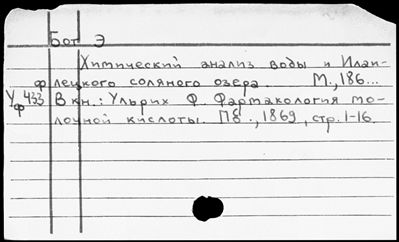 Бот Э
Химический анализ воды и Илан-
ф лецкого соляного озера. М., 186...
У 433 В кн.: Ульрих Ф. Фармакология мо-
ф лочной кислоты. Пб., 1869, стр. 1-16.